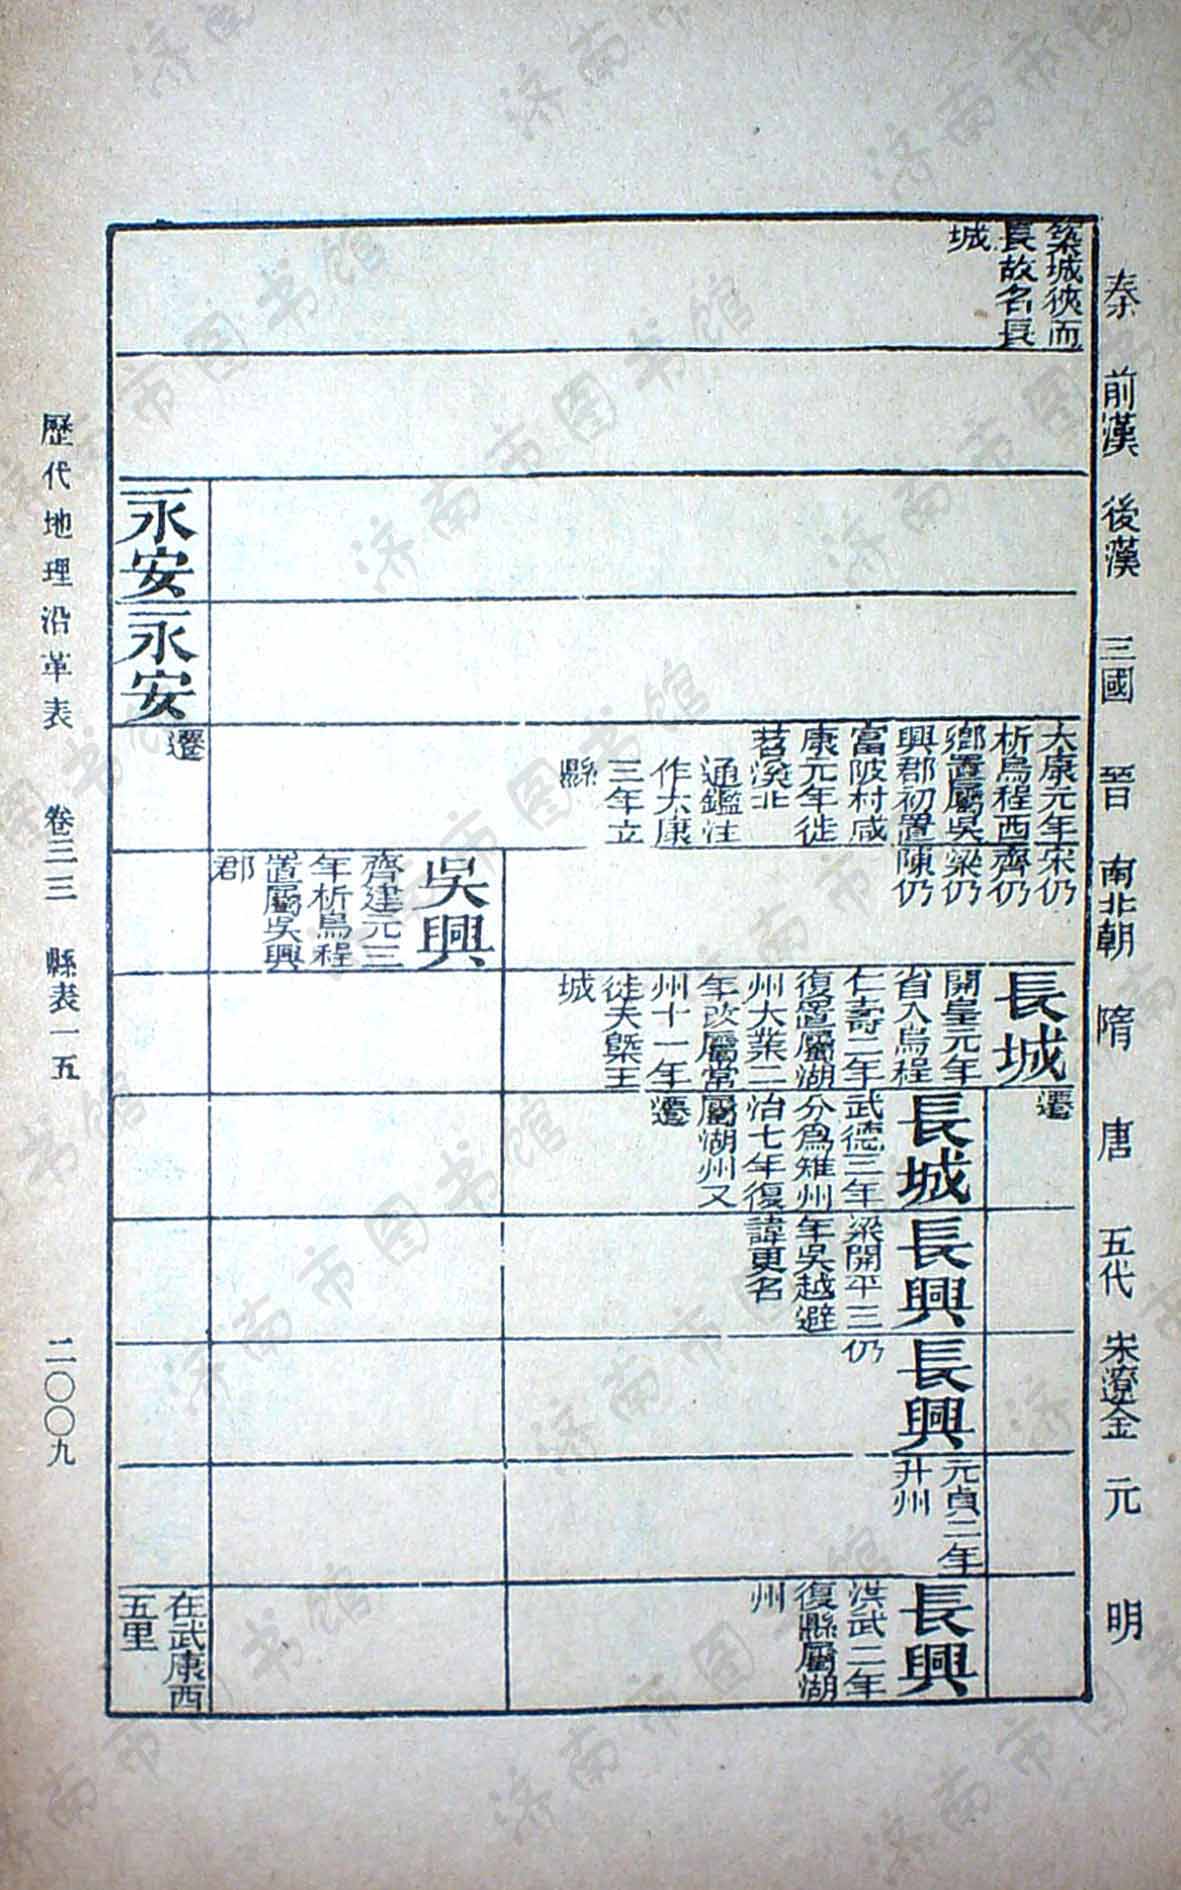 秦
前漢
後漢
三國
晉
南北朝
隋
唐
五代
宋遼金
元
明
築城狹而
長故名長
城
永安
永安
太康元年
析烏程西
鄉置屬吳
興郡初置
富陂村咸
康元年徙
苕溪北
通鑑注
作太康
三年立
縣
遷
宋仍
齊仍
梁仍
陳仍
吳興
齊建元三
年析烏程
置屬吳興
郡
長城
開皇元年
省入烏程
仁壽二年
復置屬湖
州大業二
年改屬常
州十一年
徙夫槩王
城
遷
長城
武德三年
分爲雉州
治七年復
屬湖州又
遷
長興
梁開平三
年吳越避
諱更名
長興
仍
元貞二年
升州
長興
洪武二年
復縣屬湖
州
在武康西
五里
歷代地理沿革表 卷三三 縣表一五 二〇〇九
济南市图书馆